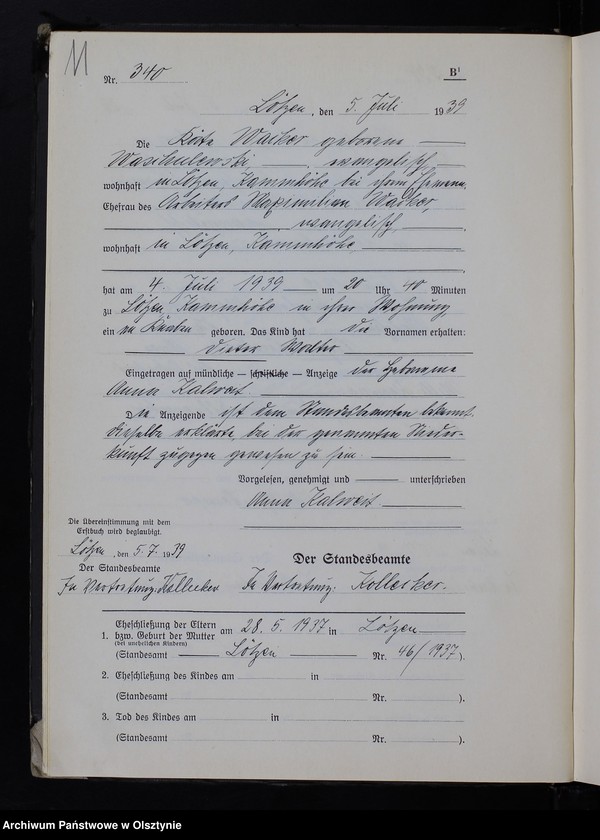 11
Nr. 340
B¹
Lötzen, den 5. Juli 1939
Die Käte Walker geborene
Waschulewski, evangelisch,
wohnhaft in Lötzen, Kammhöhe bei ihrem Ehemann,
Ehefrau des Arbeiters Maximilian Walker,
evangelisch,
wohnhaft in Lötzen, Kammhöhe,
hat am 4. Juli 1939 um 20 Uhr 40 Minuten
zu Lötzen, Kammhöhe in ihrer Wohnung
ein en Knaben geboren. Das Kind hat die Vornamen erhalten:
Dieter Walter
Eingetragen auf mündliche – schriftliche – Anzeige der Hebamme
Anna Kalweit
Die Anzeigende ist dem Standesbeamten bekannt.
Dieselbe erklärte, bei der genannten Nieder-
kunft zugegen gewesen zu sein.
Vorgelesen, genehmigt und unterschrieben
Anna Kalweit.
Die Übereinstimmung mit dem
Erstbuch wird beglaubigt.
Lötzen, den 5.7. 1939
Der Standesbeamte
In Vertretung:
Der Standesbeamte
In Vertretung:
1. Eheschließung der Eltern bzw. Geburt der Mutter am 28. 5. 1937 in Lötzen
(bei unehelichen Kindern)
(Standesamt Lötzen Nr. 46/1937).
2. Eheschließung des Kindes am in
(Standesamt Nr. ).
3. Tod des Kindes am in
(Standesamt Nr. ).
Archiwum Państwowe w Olsztynie